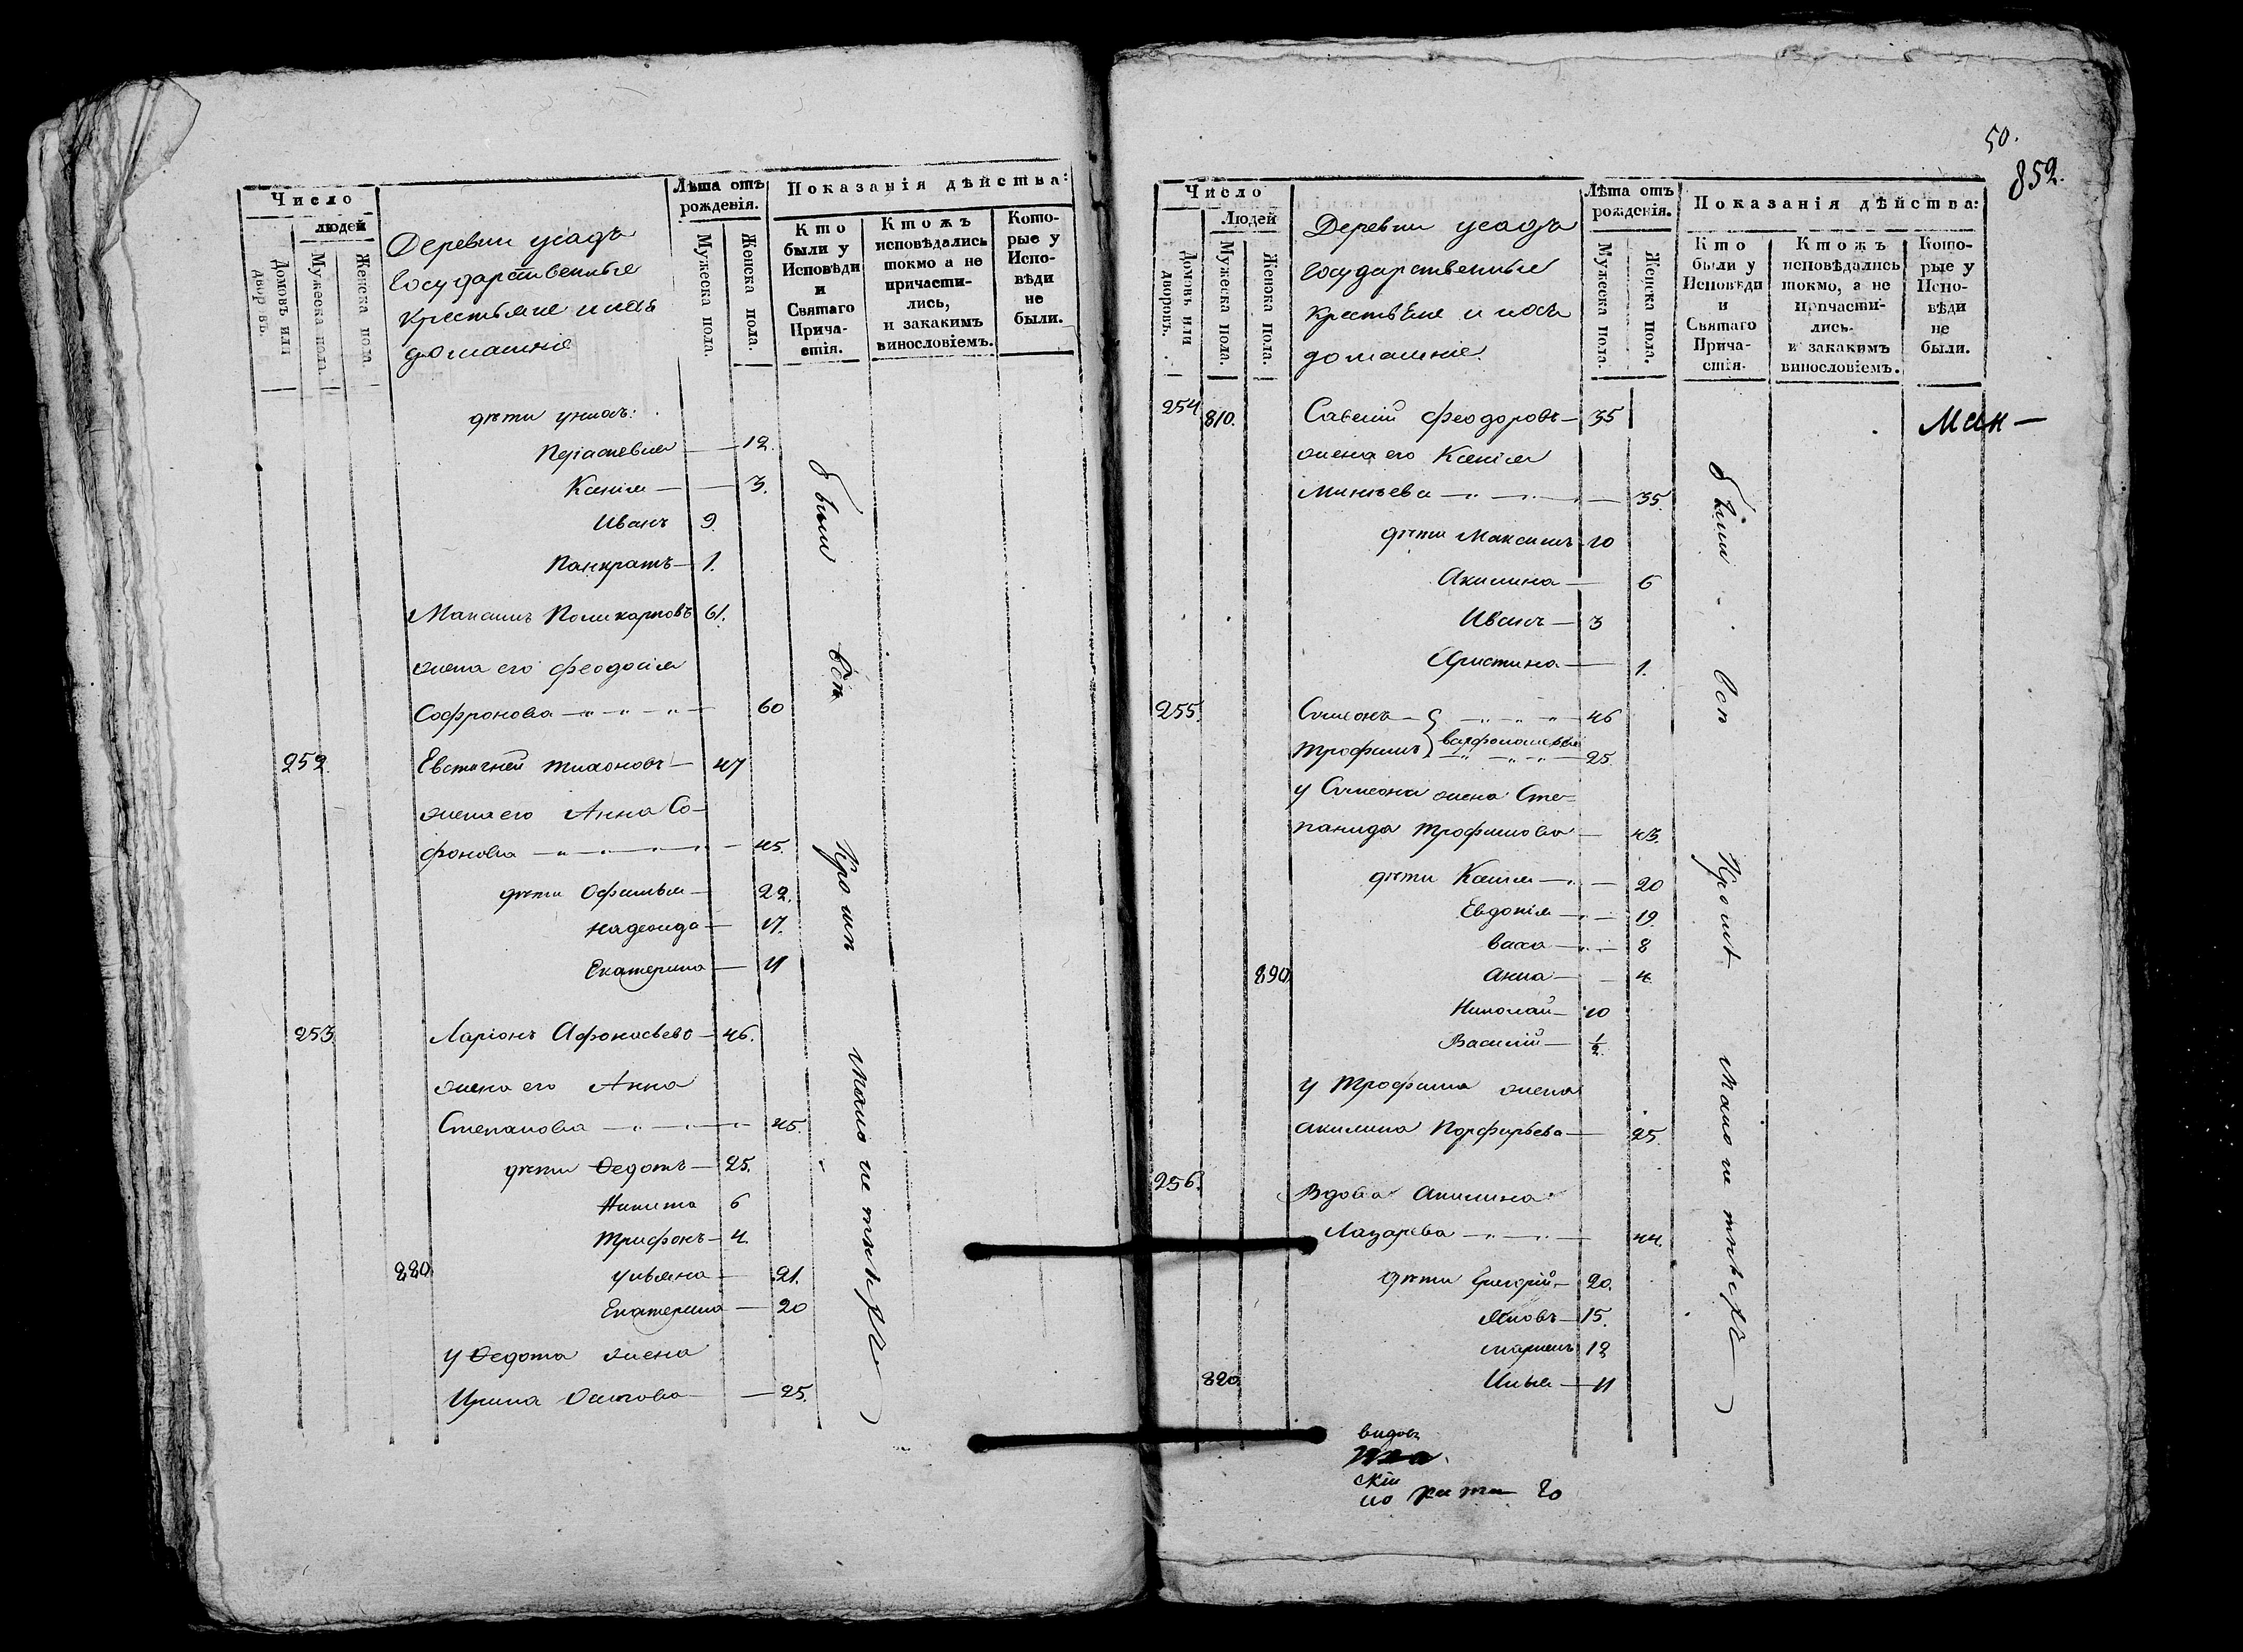 Число
людей
Домовъ или дворвъ.
Мужеска пола.
Женска пола
Деревни усадъ
государственные
крестьяне и ихъ
домашніе
Лѣта отъ рожденія.
Мужеска пола.
Женска пола.
Показанія дѣйства:
Кто были у Исповѣди и Святаго Причастія.
Ктожъ исповѣдались токмо а не причастились, и закакимъ винословіемъ.
Которые у Исповѣди не были.
дѣти у нихъ:
12.
Ксенія — 3.
Иванъ 9
Панкратъ — 1.
Максимъ Поликарповъ 61.
жена его Феодосія
Софронова — 60
252. Евстигней Тихоновъ — 47
жена его Анна Со-
фонова — 45.
дѣти Офимья — 22.
Надежда — 17.
Екатерина — 11
253 Ларіонъ Афонасьевъ — 46.
жена его Анна
Степанова — 45.
дѣти Ѳедотъ — 25.
Никита 6
Трифонъ — 4.
880 Ульяна — 21.
Екатерина — 20
у Ѳедота жена
Ирина — 25.
были всѣ кромѣ малолетнѣхъ
50.
852.
Число
Людей
Домовъ или дворовъ.
Мужеска пола.
Женска пола.
Деревни усадъ
государственные
крестьяне и ихъ
домашніе
Лѣта отъ рожденія.
Мужеска пола.
Женска пола.
Показанія дѣйства:
Кто были у Исповѣди и Святаго Причастія.
Ктожъ исповѣдались токмо, а не причастились. и закакимъ винословіемъ.
Которые у Исповѣди не были.
254 810. Савелій Феодоровъ — 35
жена его Ксенія
Минѣева — 35.
дѣти Максимъ 10
Акилина — 6
Иванъ — 3
Христина — 1.
255. Симеонъ — 46
Трофимъ } Варфоломеевы 25.
у Симеона жена Сте-
панида Трофимова — 43.
дѣти Ксенія — 20
Евдокія — 19.
Васса — 8
890 Анна — 4
Николай — 10
Василій — 1/2.
у Трофима жена
Акилина Порфирьева — 25.
256. Вдова Акилина
Лазарева — 44.
дѣти Григорій — 20.
Яковъ — 15.
12
820. Илья — 11
были всѣ кромѣ малолетнѣхъ